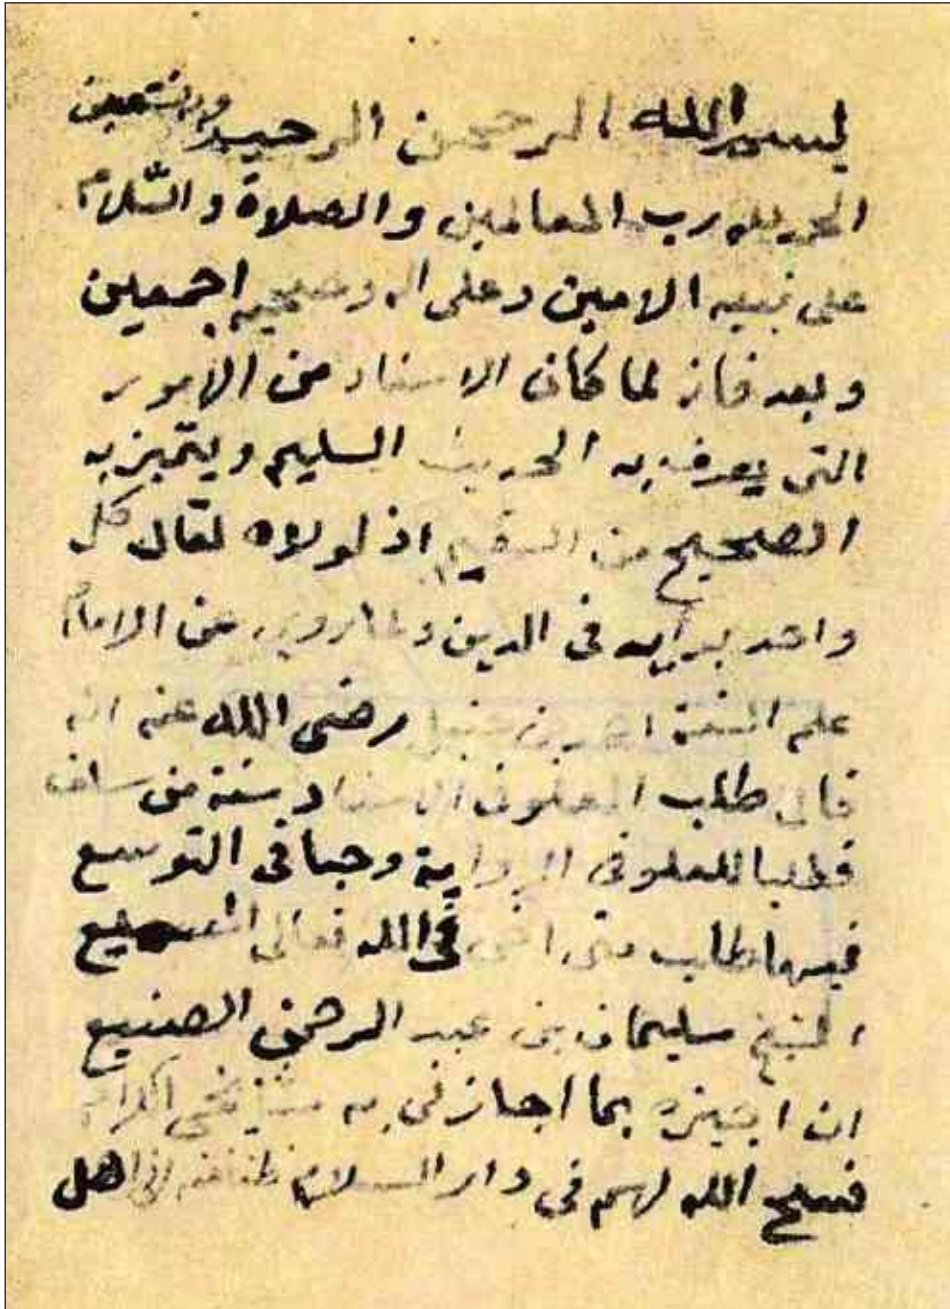 بسم الله الرحمن الرحيم وبه نستعين
الحمد لله رب العالمين والصلاة والسّلام
على نبيه الامين وعلى اله وصحبه اجمعين
وبعد فانه لما كان الاسناد من الامور
التى يعرف به الحديث السليم ويتميز به
الصحيح من السقيم اذ لولاه لقال كل
واحد برأيه فى الدين ولما روي عن الامام
علم السنة احمد بن حنبل رضى الله عنه انه
قال طلب العلو فى الاسناد سنة من سلف
فطلبا للعلو فى الرواية وحبا فى التوسع
فيها طلب منى اخى فى الله تعالى
الشيخ سليمان بن عبد الرحمن الصنيع
ان اجيزه بما اجازنى به مشايخي الكرام
فسح الله لهم فى دار السلام ظنا منه انى اهل